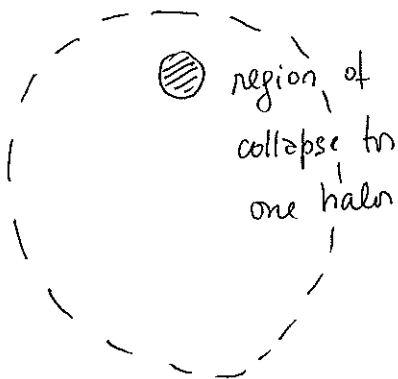 region of
collapse for
one halo